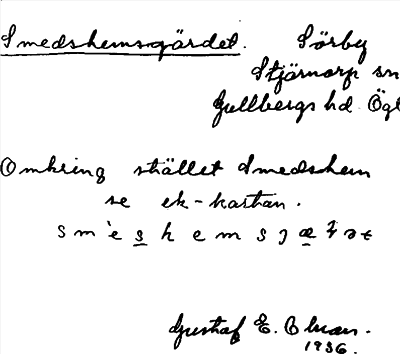 Smedshemsgärdet. Sörby
Stjärnorp sn
Gullbergs hd Ögl
Omkring stället Smedshem
se ek-kartan.
Gustaf E. Olman.
1936.